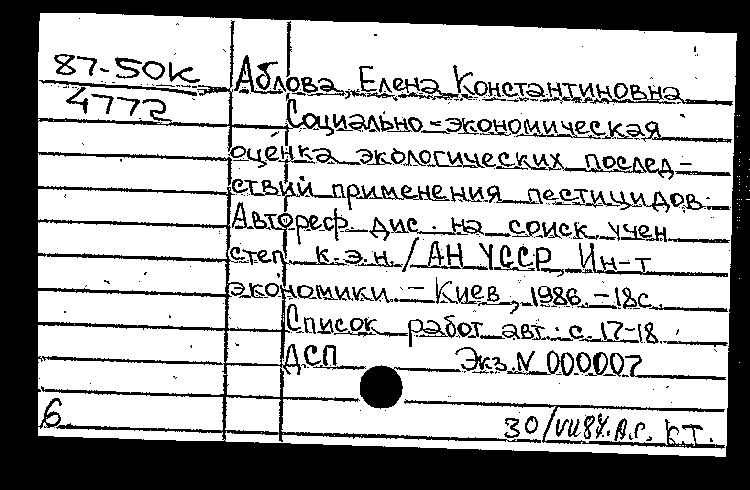 87-50К Аблова, Елена Константиновна
4772 Социально-экономическая
оценка экологических послед-
ствий применения пестицидов.
Автореф. дис. на соиск. учен
степ. к.э.н. / АН УССР, Ин-т
экономики. - Киев, 1986. - 18 с.
Список работ авт.: с. 17-18.
ДСП Экз. N 000007
6 30/VII87. А.Г. К.Т.